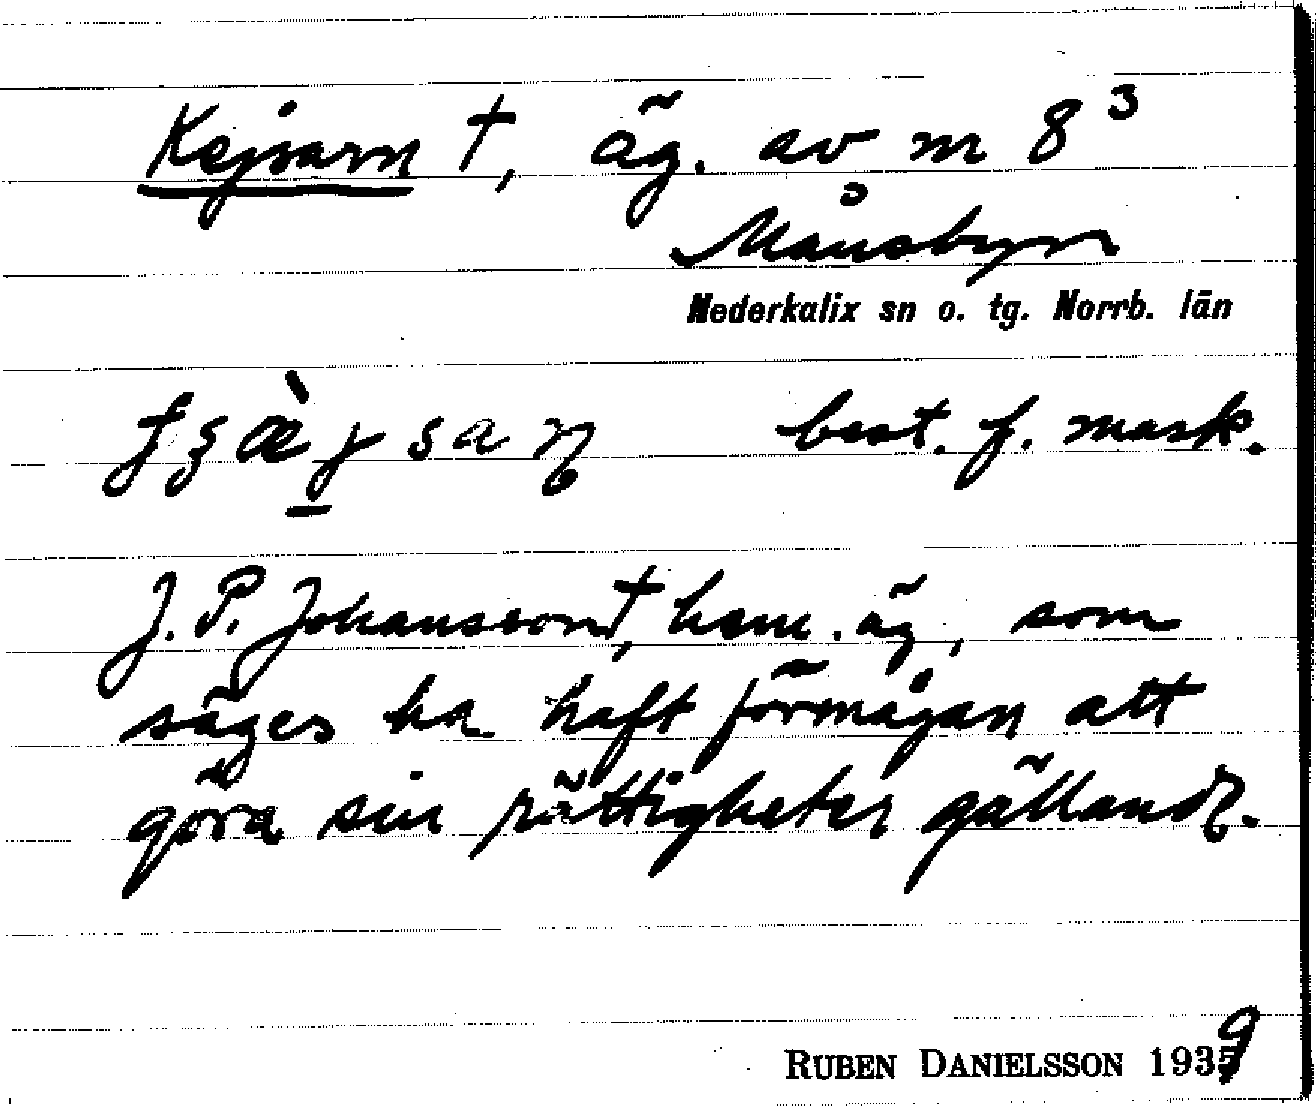 Kejsarn †, äg. av nr 8³
Månsbyn
Nederkalix sn o. tg. Norrb. län
best. f. mask.
J. P. Johansson†, hem. äg., som
säges ha haft förmågan att
göra sin rättigheter gällande.
RUBEN DANIELSSON 1939